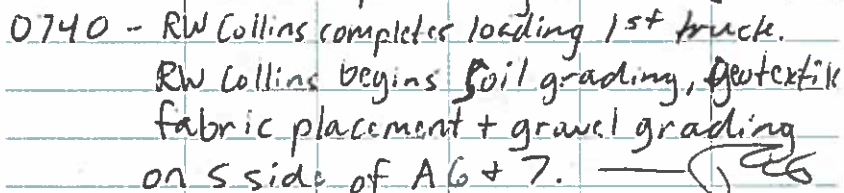 0740 - RW Collins completes loading 1st truck.
RW Collins begins soil grading, geotextile
fabric placement + gravel grading
on S side of A6 + 7.